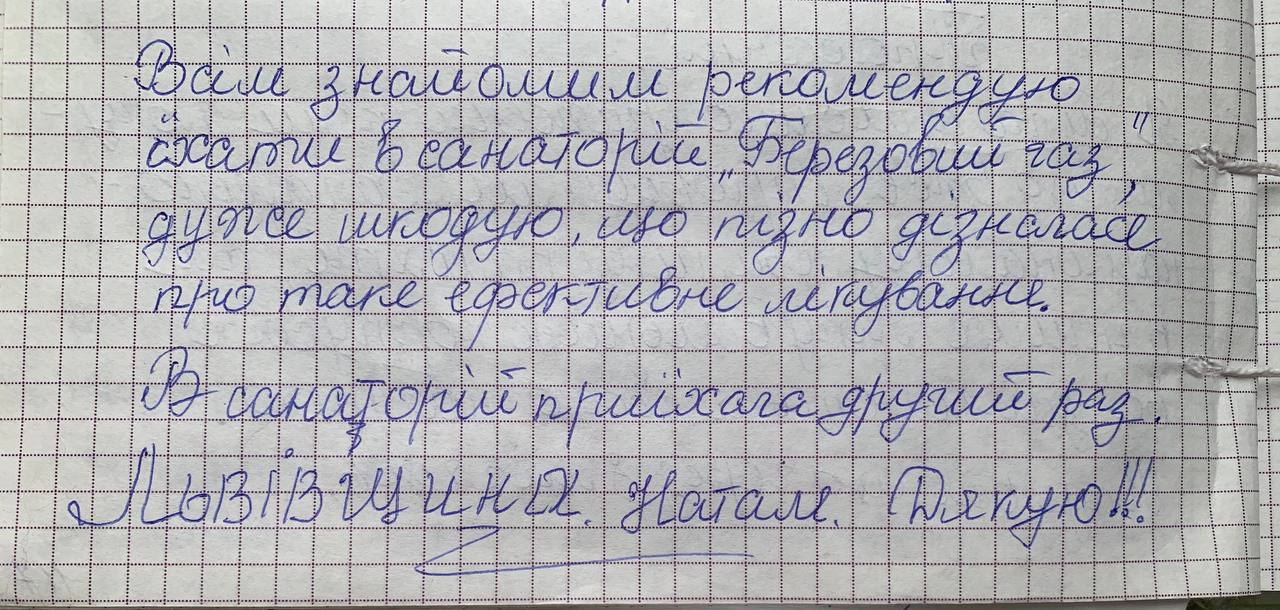 Всім знайомим рекомендую
їхати в санаторій „Березовий газ",
дуже шкодую, що пізно дізналася
про таке ефективне лікування.
В санаторій приїхала другий раз.
Львівщина. Наталя. Дякую!!!